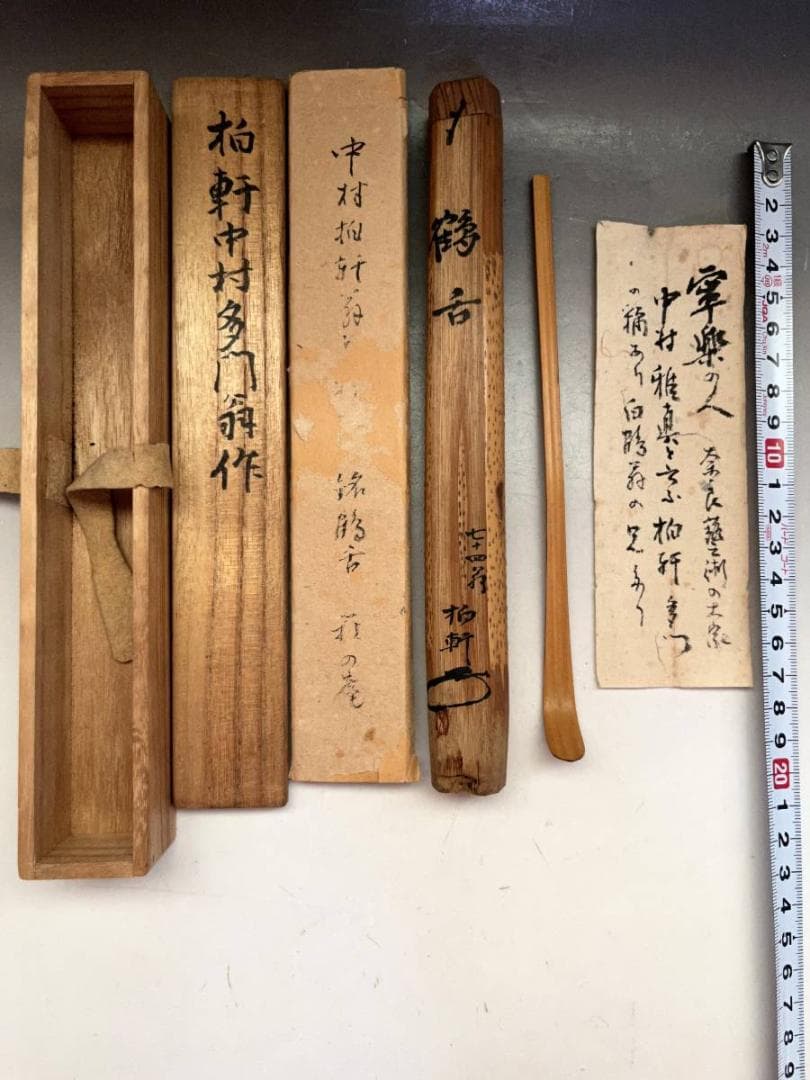 柏軒中村多門翁作
中村柏軒翁
銘鶴舌
の庵
鶴舌
七十四翁
柏軒
寧楽の人
奈良藝術の大家
中村雅真と云ふ柏軒多門
の稱あり白鶴翁の
2 3 4 5 6 7 8 9 10 1 2 3 4 5 6 7 8 9 20 1 2 3 4 5 6 7 8 9
2m
JQA